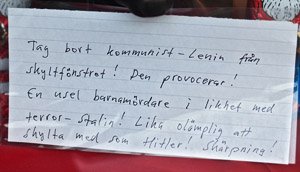 Tag bort kommunist-Lenin från
skyltfönstret! Den provocerar!
En usel barnamördare i likhet med
terror-Stalin! Lika olämplig att
skylta med som Hitler! Skärpning!